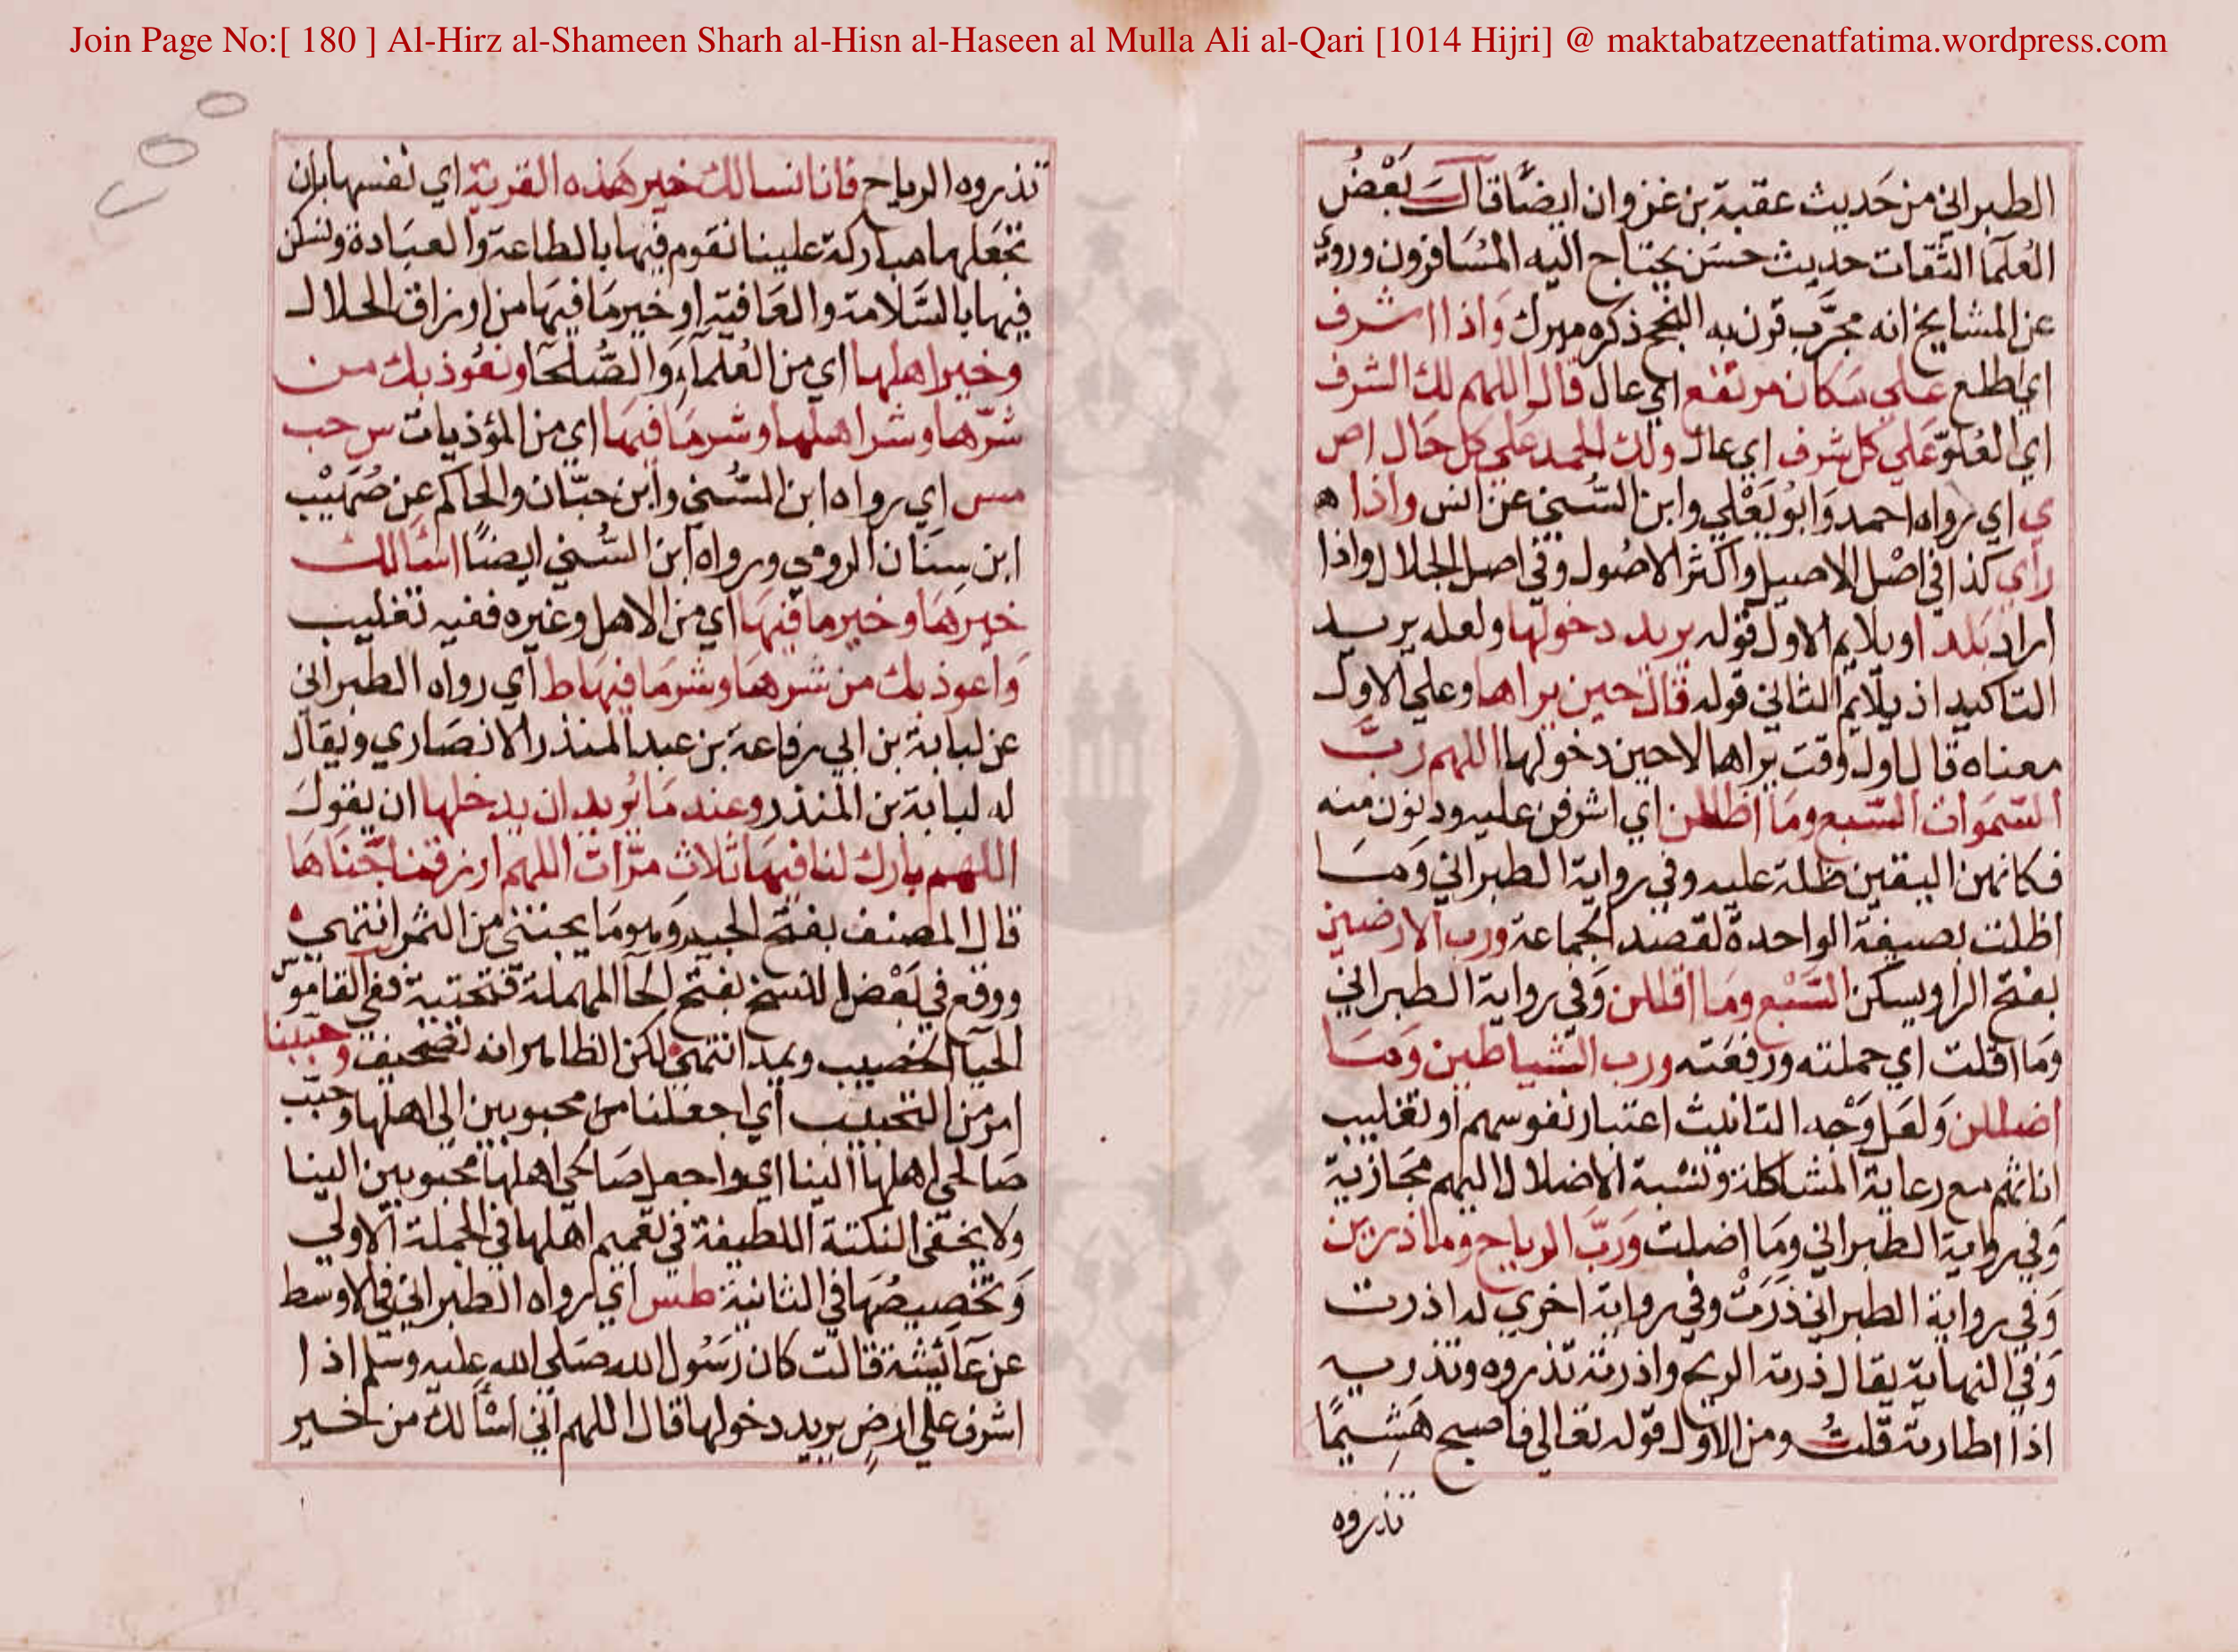 Join Page No:[ 180 ] Al-Hirz al-Shameen Sharh al-Hisn al-Haseen al Mulla Ali al-Qari [1014 Hijri] @ maktabatzeenatfatima.wordpress.com
الطبراني من حَديث عقبة بن غزوان ايضًا قالَ بَعْضُ
العُلَمآ الثقات حديث حسَن يحتاج اليه المُسَافرون وروي
عن المشايخ انه مجرَّب قرن به النجح ذكره ميرك وَاذا اشرف
اي اطلع علي مكان مرتفع اي عال قال اللهم لك الشرف
اي العُلوّ عَلي كل شرف اي عال ولك الحمد عَلي كل حَال اص
ي اي رواه احمد وَابُو يَعْلي وابن السُّني عن انس واذا ه
راي كذا في اصْل الاصيل واكثر الاصُول وفي اصل الجلال واذا
اراد بَلدا ويلايم الاول قوله يريد دخولها ولعله يريد
التاكيد اذ يلايم الثاني قوله قال حين يراها وعلي الاول
معناه قال اول وقت يراها لا حين دخولها اللهم ربَّ
السّمَوات السّبع ومَا اظللن اي اشرفن عليه ودنون منه
فكانهن البقين ظلة عليه وفي رواية الطبراني وَمَا
اظلت بصيغة الواحدة لقصد الجماعة ورب الارضين
بفتح الرا ويسكن السَّبْع ومَا اقللن وَفي رواية الطبراني
وَما اقلت اي حملته ورفعَته ورب الشياطين وَمَا
اضللن وَلعَل وَجْه التانيث اعتبار نفوسهم او تغليب
اناثهم مع رعاية المشاكلة ونسْبة الاضلال اليهم مجَازية
وَفي رواية الطبراني ومَا اضلت وَرَبَّ الرياح وما ذرين
وَفي رواية الطبراني ذَرَتْ وفي رواية اخري له اذرت
وَفي النهاية يقال ذرته الريح واذرته تذروه وتذريه
اذا اطارته قلتُ ومن الاول قوله تعالي فاصبح هَشِيمًا
تذروه
تذروه الرياح فانا نسالك خير هَذه القرية اي نفسها بان
تجعَلها مباركة علينا نقوم فيها بالطاعة والعبَادة ونسكن
فيها بالسَّلامة والعَافية او خير مَا فيهَا من ارزاق الحلال
وخير اهلها اي من العُلمآء وَالصُّلحَا ونعُوذ بك من
شرّها وشر اهلها وشر مَا فيهَا اي من المؤذيات س حب
مس اي رواه ابن السُّني وابن حبّان والحاكم عن صُهَيْب
ابن سِنَان الرومي ورواه ابن السُّني ايضًا اسَالك
خيرهَا وخير ما فيهَا اي من الاهل وغيره ففيه تغليب
وَاعوذ بك من شرهَا وشر مَا فيهَا ط اي رواه الطبراني
عن لبابة بن ابي رفاعة بن عبد المنذر الانصَاري ويقال
له لبابة بن المنذر وعند مَا يُريد ان يدخلها ان يقول
اللهم بارك لنا فيهَا ثلاث مَرّات اللهم ارزقنا جَنَاهَا
قال المصنف بفتح الجيم وَهو مَا يجتني من الثمر انتهي
ووقع في بَعْض النسخ بفتح الحآ المهملة فتحتية ففي القاموس
الحيَا الخصيب ويمد انتهي لكن الظاهر انه تصحيف وحببنا
امر من التحبيب اي اجعلنا من محبوبين الي اهلها وحبّب
صَالحي اهلها الينا اي واجعل صَالحي اهلها محَبوبين الينا
ولا يخفي النكتة اللطيفة في تعميم اهلها في الجملة الاولي
وَتخصيصُهَا في الثانية طس اي رواه الطبراني في الاوسط
عن عَآئشة قالت كان رَسُول الله صَلي الله عليه وسلم اذا
اشرف علي ارضٍ يريد دخولها قال اللهم اني اسْألك من خير